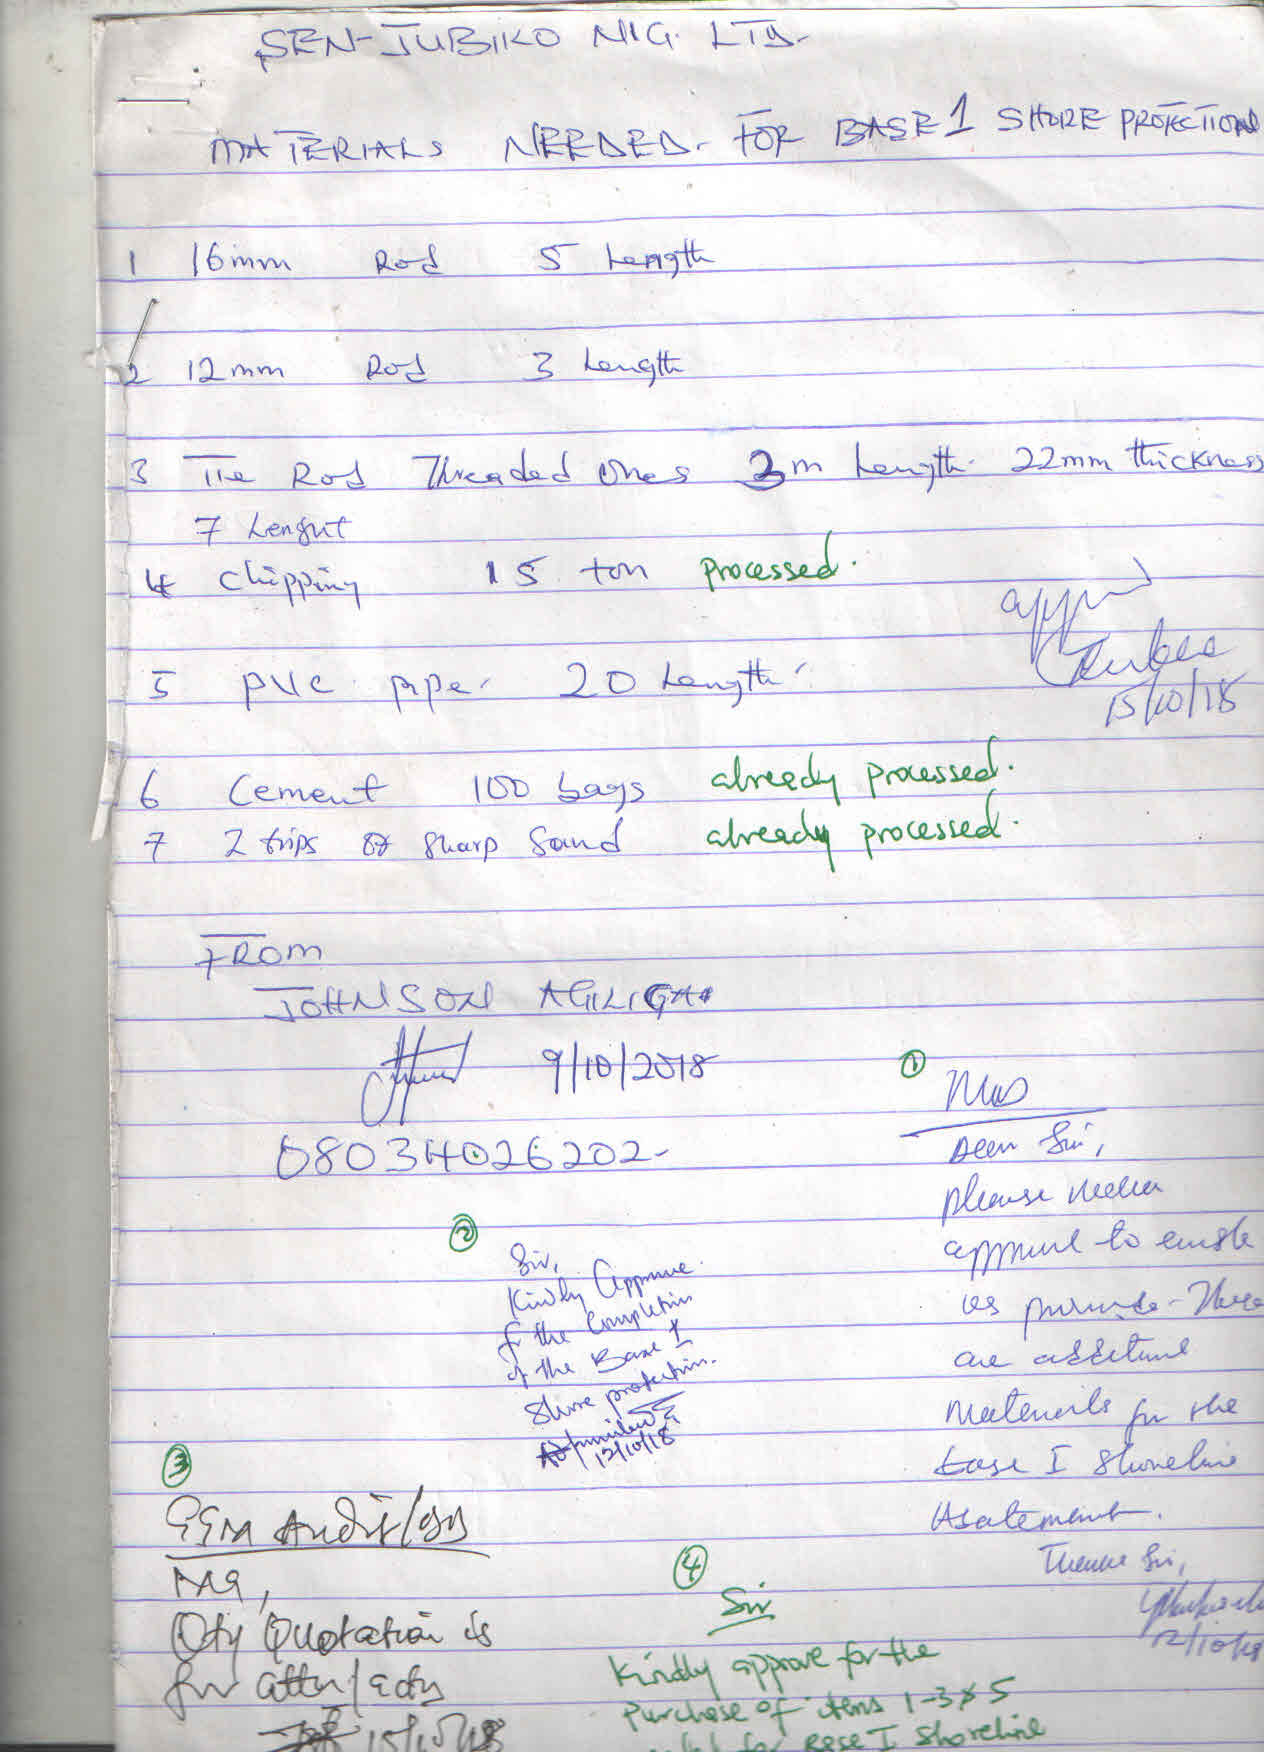 SEN-JUBIKO NIG. LTD.
MATERIALS NEEDED. FOR BASE 1 SHORE PROTECTION
1 16mm Rod 5 Length
2 12mm Rod 3 Length
3 Tie Rod Threaded Ones 3m Length. 22mm thickness
7 Lenght
4 Chipping 15 ton processed.
5 PVC pipe. 20 Length.
15/10/18
6 Cement 100 bags already processed.
7 2 trips of sharp sand already processed.
FROM
JOHNSON AGILIGA
9/10/2018
08034026202
①
MD
Dear Sir,
please
approve to enable
us provide these
are
materials for the
base I Shoreline
Abatement.
Thank Sir,
12/10/18
②
Sir,
Kindly approve
for the completion
of the Base I
Shore protection.
12/10/18
③
GGM Audit/
Qty Quotation is
for attn/
15/10/18
④
Sir
Kindly approve for the
purchase of items 1-3 & 5
for Base I Shoreline